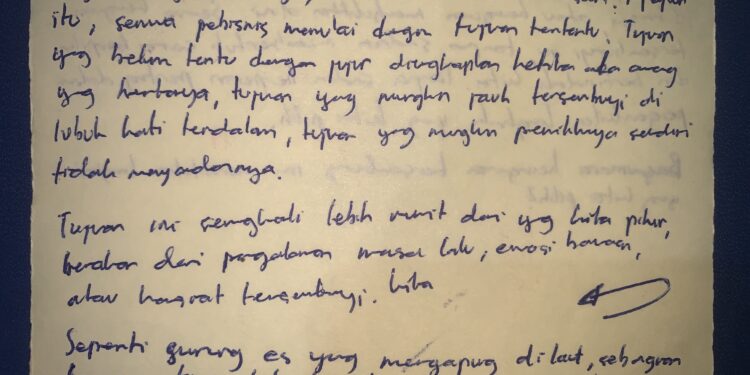 itu, semua pebisnis memulai dengan tujuan tertentu. Tujuan
yang belum tentu dengan jujur diungkapkan ketika ada orang
yang bertanya, tujuan yang mungkin jauh tersembunyi di
lubuk hati terdalam, tujuan yang mungkin pemiliknya sendiri
tidak menyadarinya.
Tujuan ini seringkali lebih rumit dari yang kita pikir,
berakar dari pengalaman masa lalu, emosi bawaan,
atau hasrat tersembunyi. kita
Seperti gunung es yang mengapung di laut, sebagian